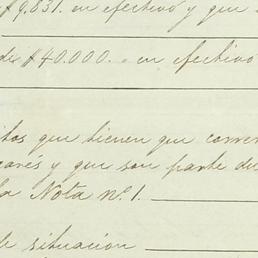 $9.831. en efectivo y que
de $40.000. en efectivo
que tienen que correr
y que son parte de
la Nota nº 1.
de situacion